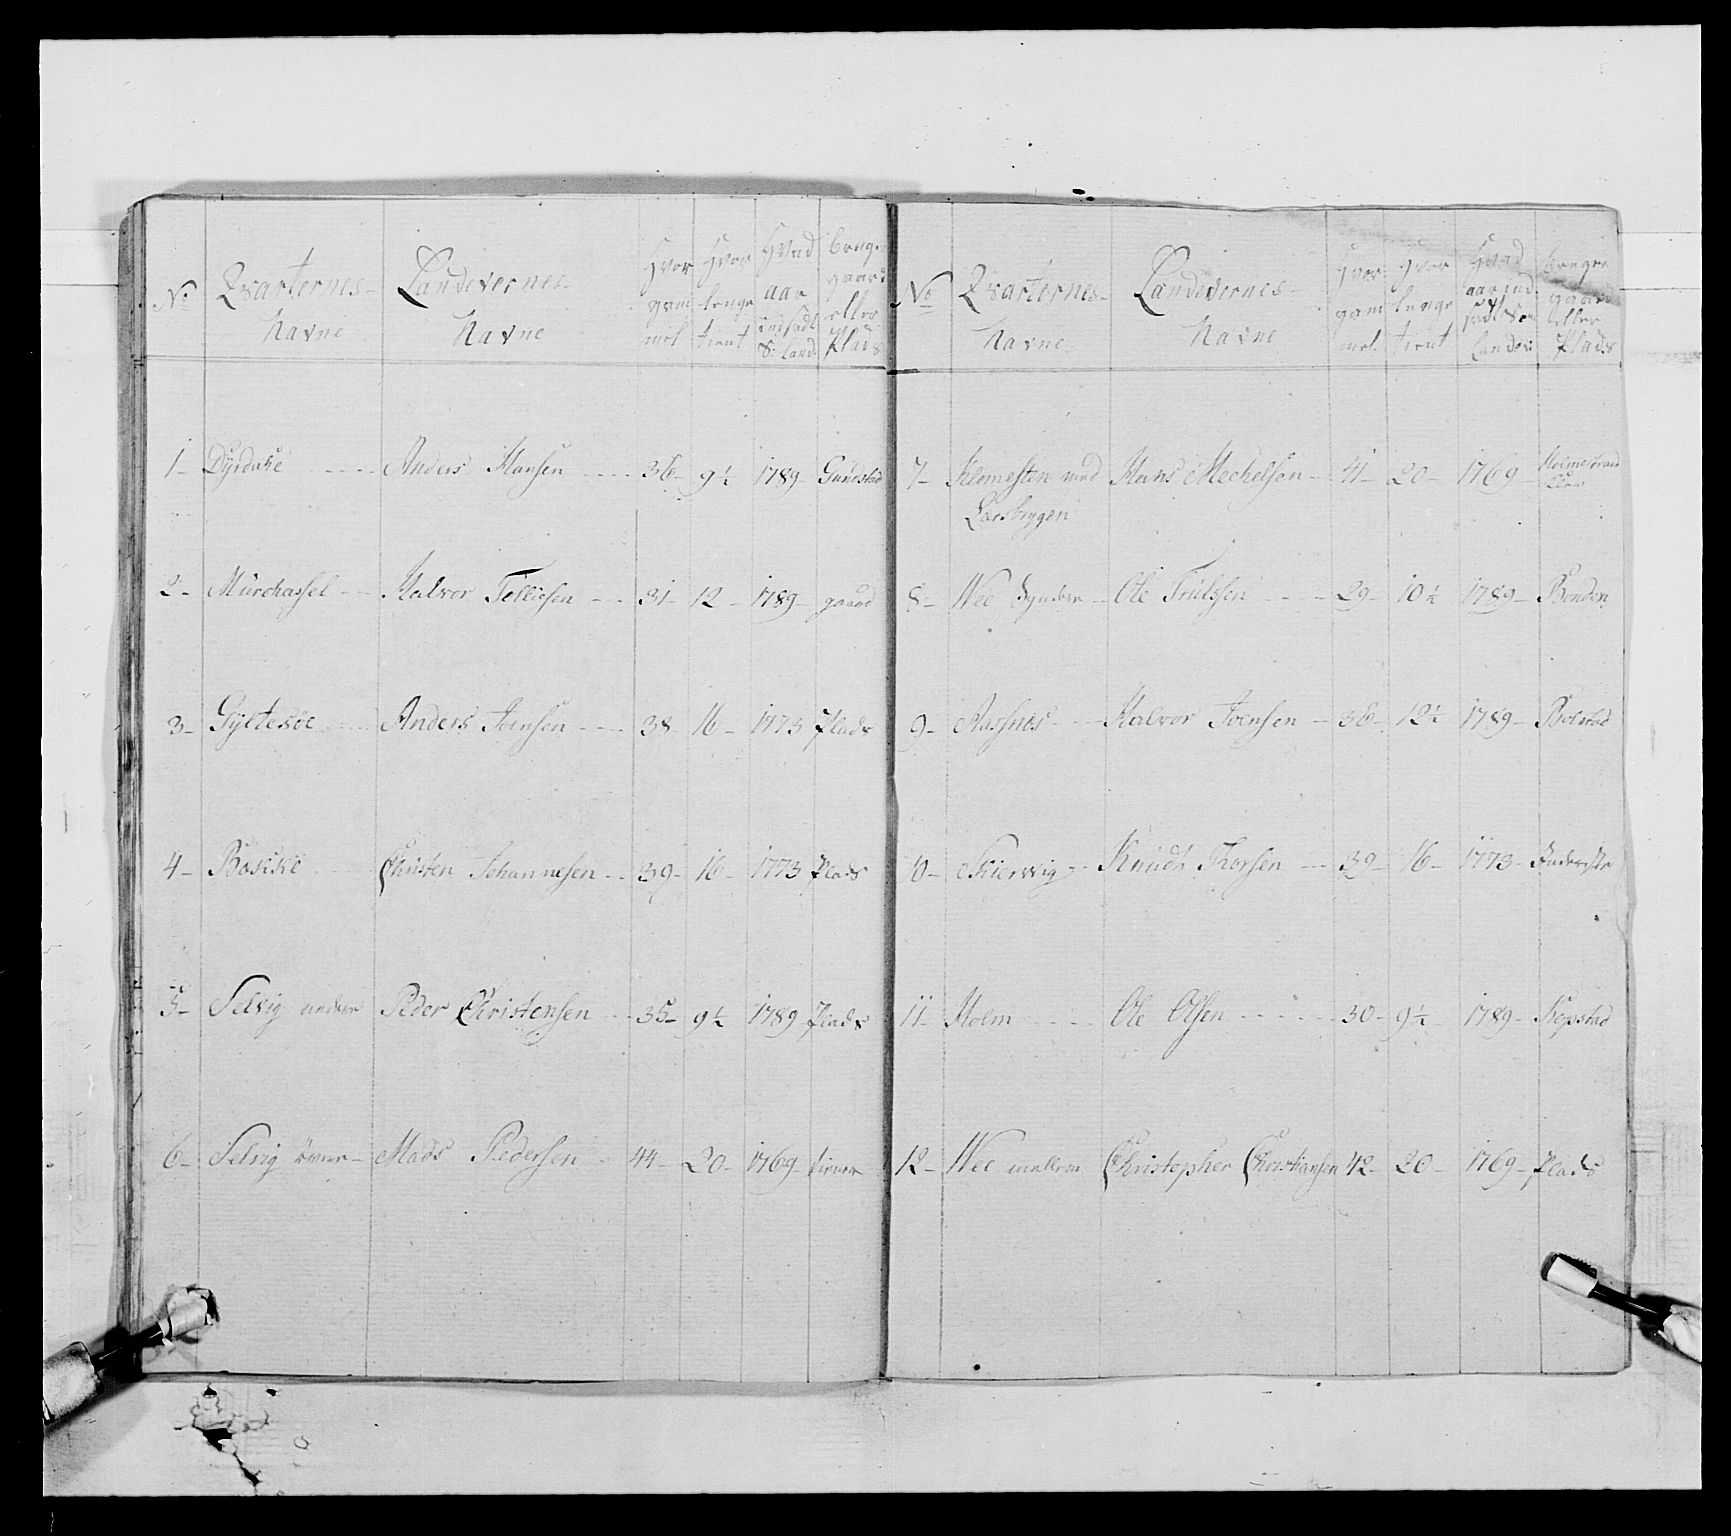 No Qvarternes Navne Landevernes Navne Hvor gam mel Hvor lenge tient Hvad aar indsadt S: Land. brug. gaard eller Plads
1 - Dyrdahl Anders Hansen 36 - 9½ 1789 - Gundstad
2 - Murchassel Halvor Tollefsen 31 - 12 - 1789 - gaard
3 - Gyltesöe Anders Joensen 38 16 - 1773 Plads
4 - Bakke Christen Johannesen 39 - 16 - 1773 Plads
5 - Selvig nedere Peder Christensen 35 - 9½ 1789 Plads
6 - Selvig övre - Mads Pedersen 44 - 20 - 1769
No Qvarternes Navne Landevernes Navne Hvor gam mel. Hvor lenge tient Hvad aar ind sadt som Landev: bruger gaard eller Plads
7 - Klemesten med Hans Mechelsen - 41 - 20 - 1769 - Holmestrand
Larsbrygen
8 - Wee Syndere Ole Trulssen 29 - 10½ 1789 - Bonden
9 - Aasnes Halvor Joensen 36 - 12½ 1789 - Bolstad
10 - Skiervig Knudt Thorsen 39 - 16 - 1773 -
11 - Holm Ole Olsen 30 - 9½ 1789 - Kopstad
12 - Wee mellem Christopher Christiansen 42 - 20 - 1769 - Plads